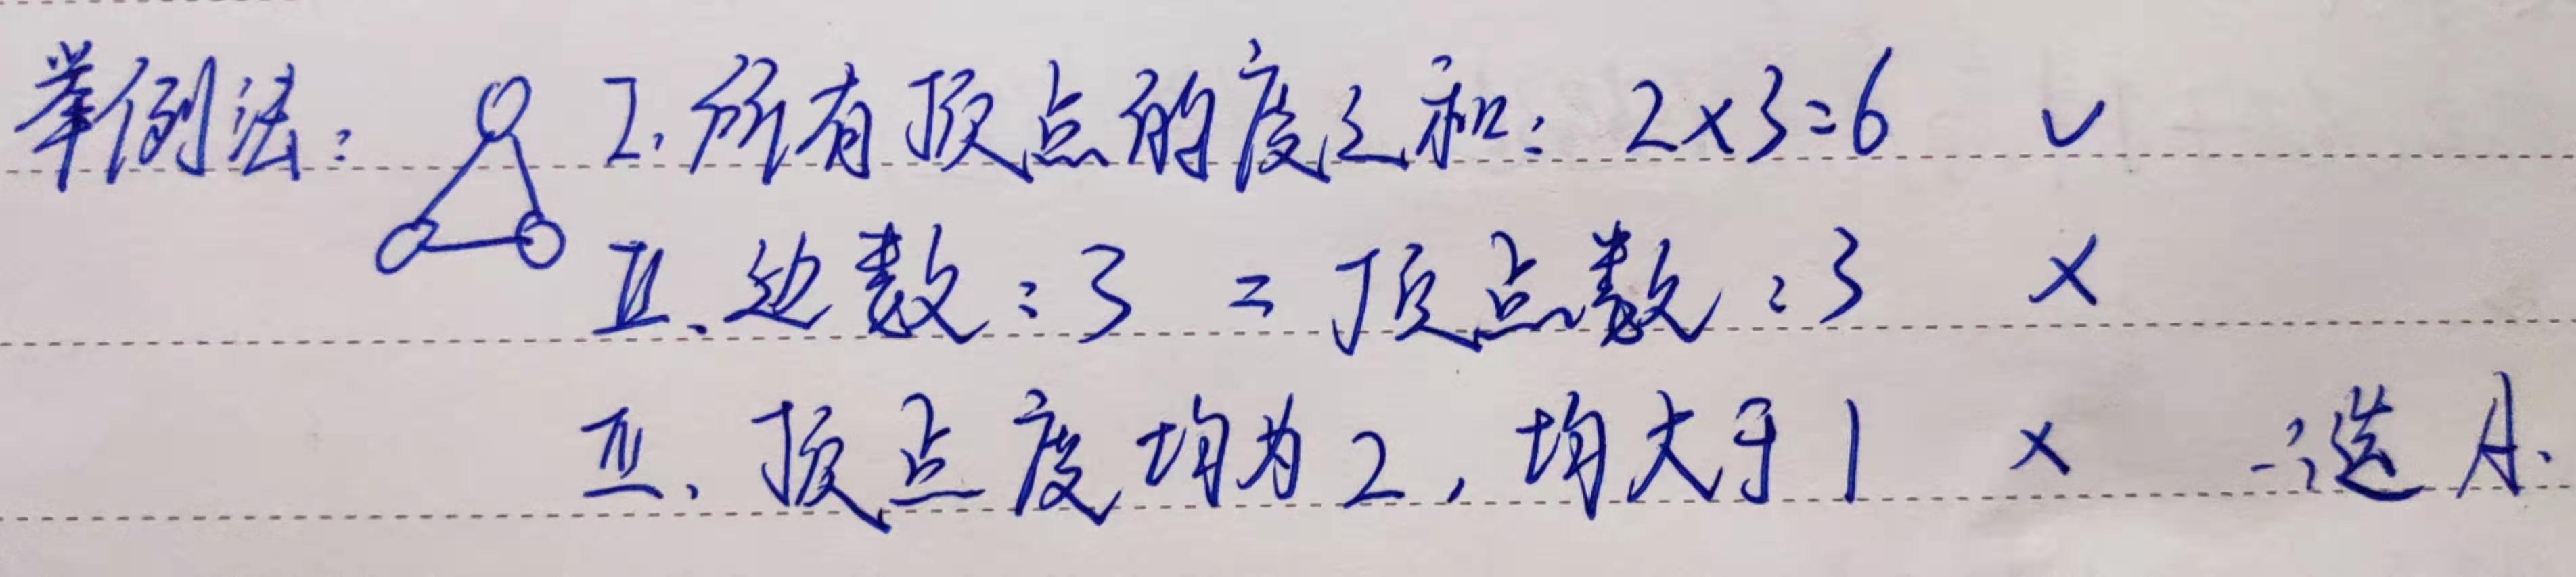 举例法： I. 所有顶点的度之和：2×3=6 ✓
II. 边数：3 = 顶点数：3 ×
III. 顶点度均为2，均大于1 × ∴选A.